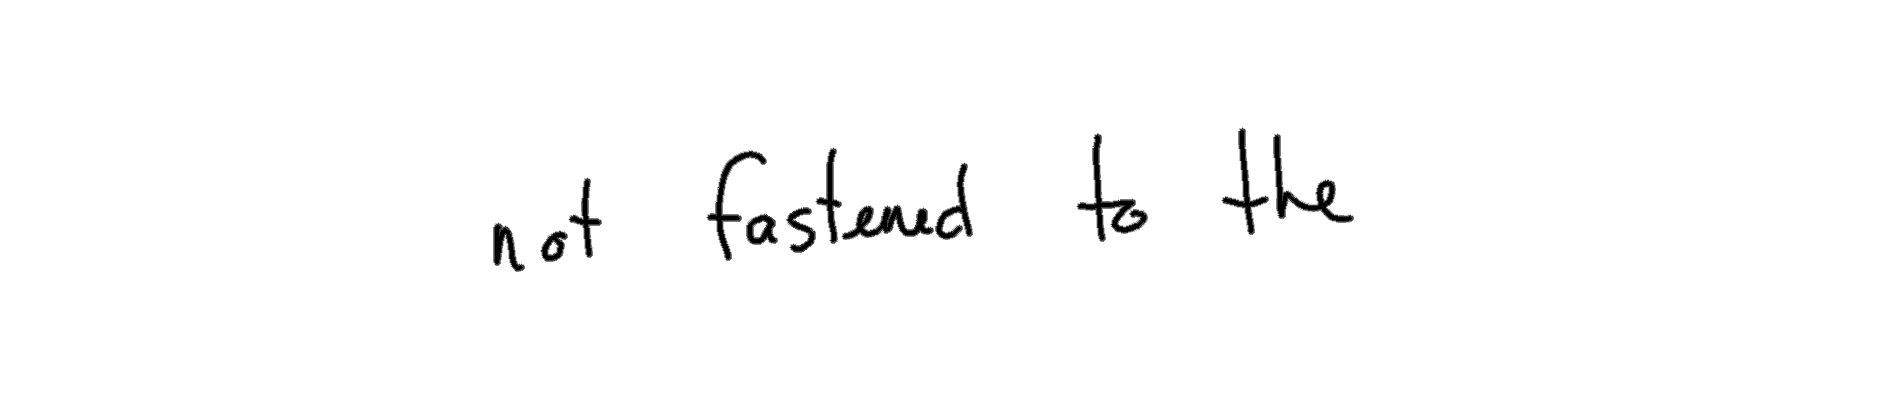 not fastened to the